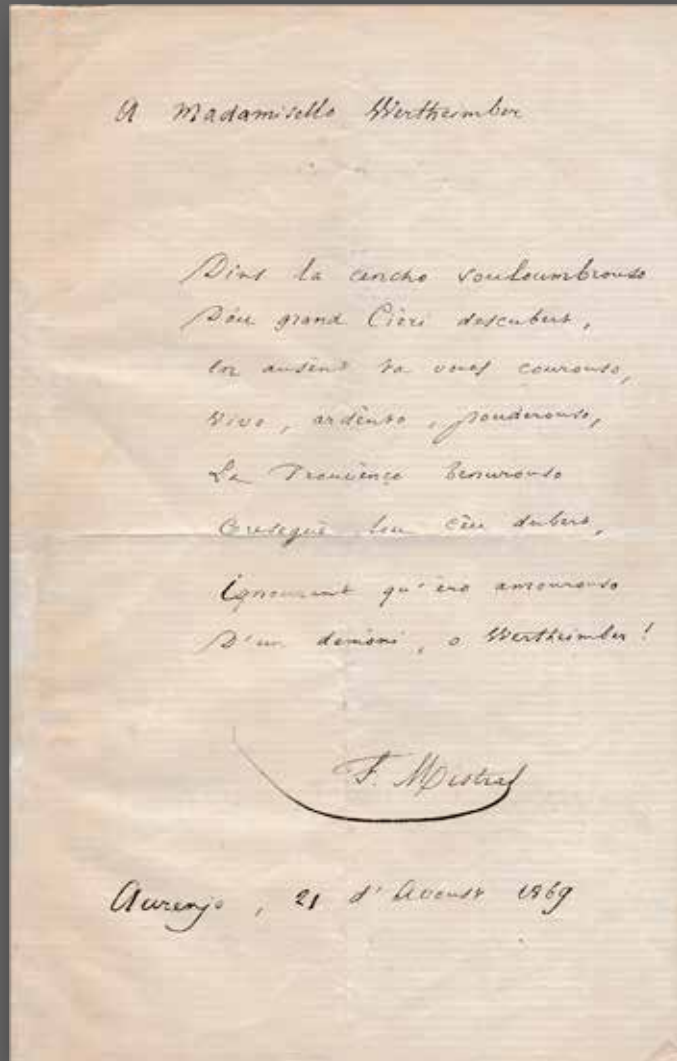 A Madamisello Wertheimber
Dins la cencho souloumbrouso
Dóu grand Cièri descubert,
En ausènt ta voues courouso,
Vivo, ardènto, pouderouso,
La Prouvènço benurouso
Creseguè lou cèu dubert,
Ignourant qu'ero amourouso
D'un demòni, o Wertheimber!
F. Mistral
Aurenjo, 21 d'Avoust 1869